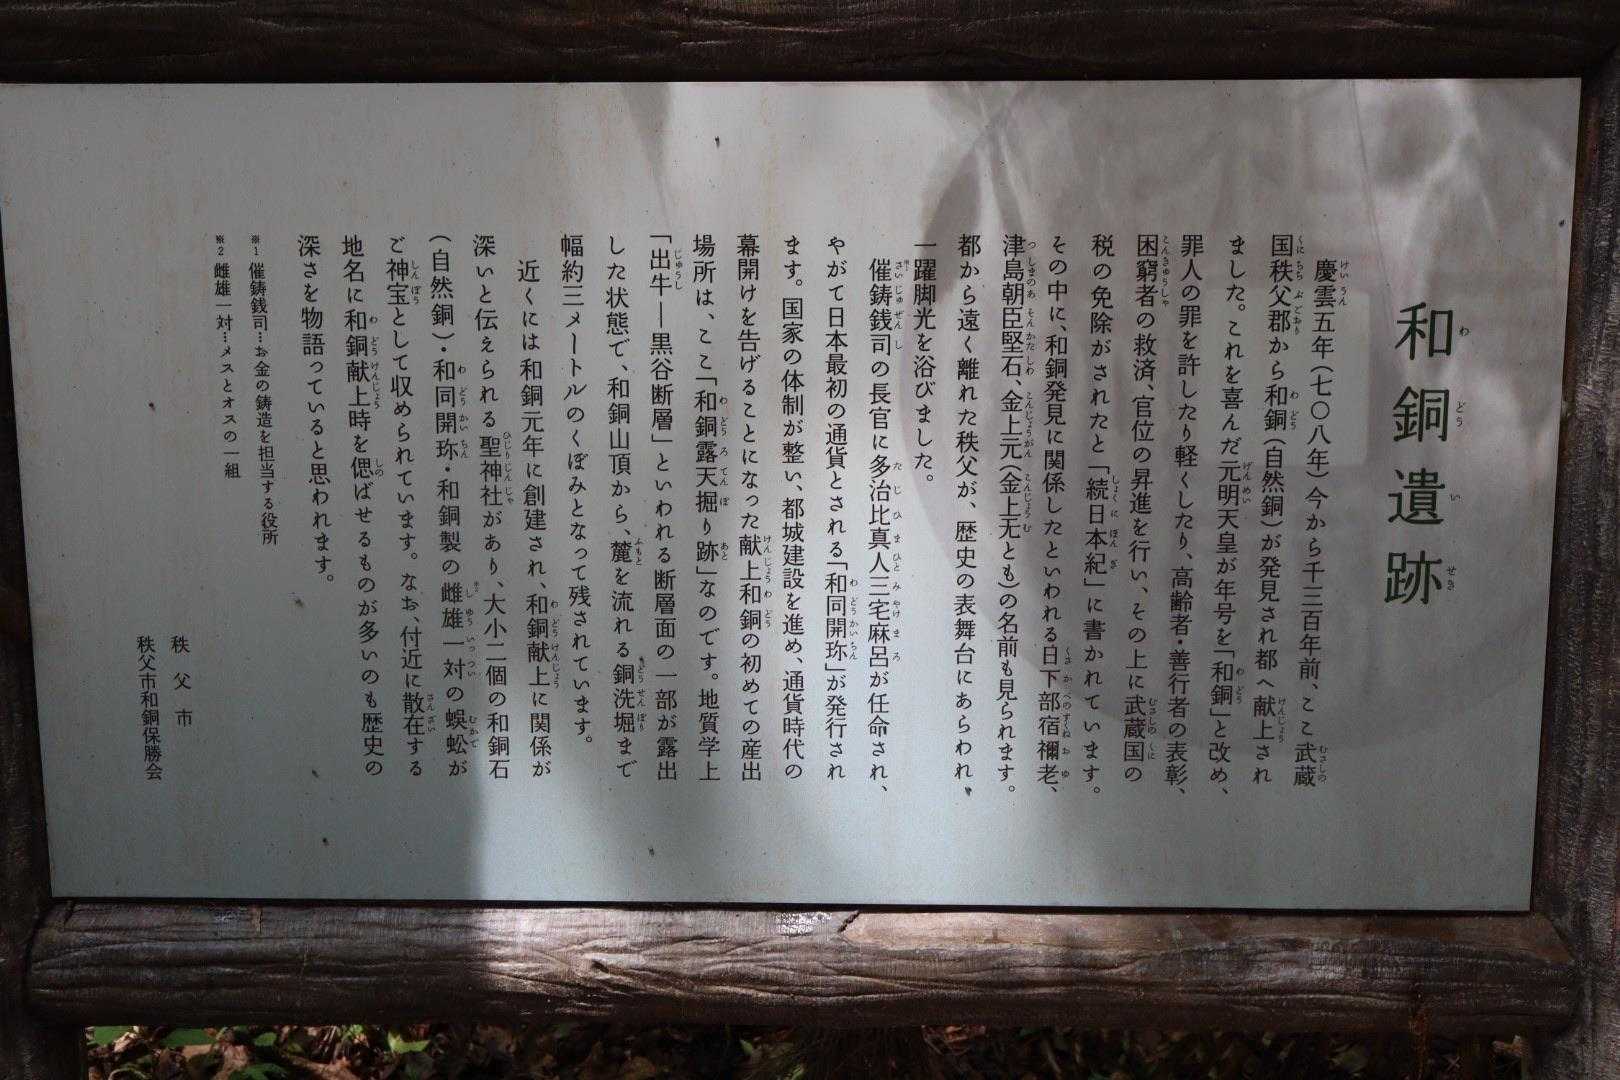 和銅遺跡
慶雲五年(七〇八年)今から千三百年前、ここ武蔵
国秩父郡から和銅(自然銅)が発見され都へ献上され
ました。これを喜んだ元明天皇が年号を「和銅」と改め、
罪人の罪を許したり軽くしたり、高齢者・善行者の表彰、
困窮者の救済、官位の昇進を行い、その上に武蔵国の
税の免除がされたと「続日本紀」に書かれています。
その中に、和銅発見に関係したといわれる日下部宿禰老、
津島朝臣堅石、金上元(金上无とも)の名前も見られます。
都から遠く離れた秩父が、歴史の表舞台にあらわれ
一躍脚光を浴びました。
催鋳銭司の長官に多治比真人三宅麻呂が任命され、
やがて日本最初の通貨とされる「和同開珎」が発行され
ます。国家の体制が整い、都城建設を進め、通貨時代の
幕開けを告げることになった献上和銅の初めての産出
場所は、ここ「和銅露天掘り跡」なのです。地質学上
「出牛―黒谷断層」といわれる断層面の一部が露出
した状態で、和銅山頂から、麓を流れる銅洗堀まで
幅約三メートルのくぼみとなって残されています。
近くには和銅元年に創建され、和銅献上に関係が
深いと伝えられる聖神社があり、大小二個の和銅石
(自然銅)・和同開珎・和銅製の雌雄一対の蜈蚣が
ご神宝として収められています。なお、付近に散在する
地名に和銅献上時を偲ばせるものが多いのも歴史の
深さを物語っていると思われます。
※1 催鋳銭司…お金の鋳造を担当する役所
※2 雌雄一対…メスとオスの一組
秩父市
秩父市和銅保勝会